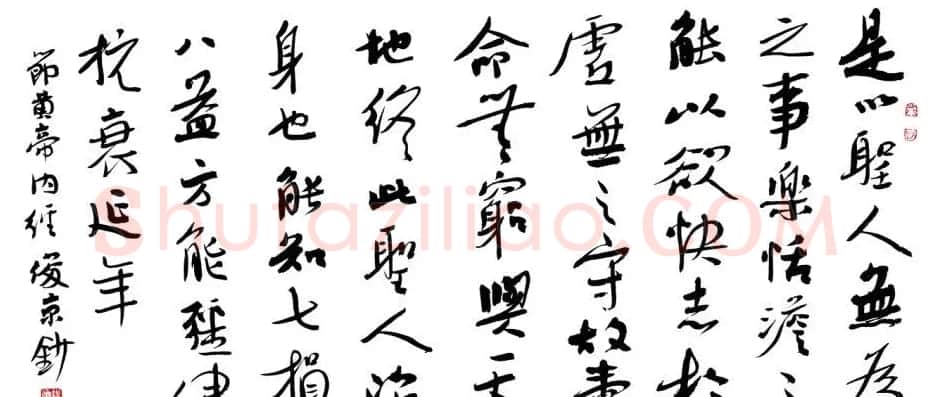 是以聖人無為
之事樂恬澹之
能以欲快志於
虛無之守故壽
命無窮與天
地終此聖人治
身也能知七損
八益方能強健
抗衰延年
節黃帝内經俊京鈔
Shufaziliao.COM